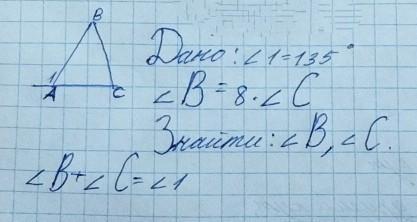 B
1
A
C
Дано: ∠1=135°
∠B = 8·∠C
Знайти: ∠B, ∠C.
∠B+∠C=∠1